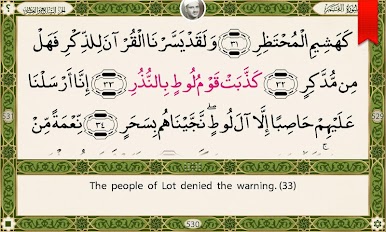 سورة القمر
كَهَشِيمِ الْمُحْتَظِرِ ٣١ وَلَقَدْ يَسَّرْنَا الْقُرْآنَ لِلذِّكْرِ فَهَلْ
مِن مُّدَّكِرٍ ٣٢ كَذَّبَتْ قَوْمُ لُوطٍ بِالنُّذُرِ ٣٣ إِنَّا أَرْسَلْنَا
عَلَيْهِمْ حَاصِبًا إِلَّا آلَ لُوطٍ ۖ نَّجَّيْنَاهُم بِسَحَرٍ ٣٤ نِّعْمَةً مِّنْ
The people of Lot denied the warning.(33)
530